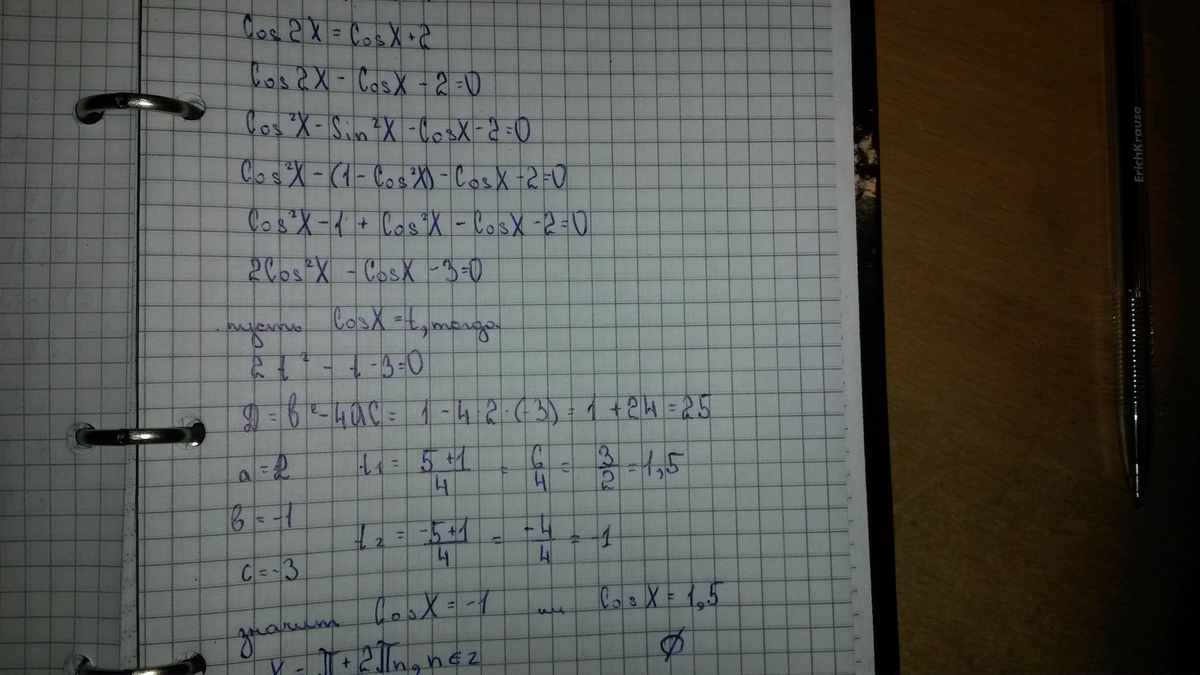 Cos2X = CosX + 2
Cos2X - CosX - 2 = 0
Cos²X - Sin²X - CosX - 2 = 0
Cos²X - (1 - Cos²X) - CosX - 2 = 0
Cos²X - 1 + Cos²X - CosX - 2 = 0
2Cos²X - CosX - 3 = 0
пусть CosX = t, тогда
2t² - t - 3 = 0
D = b² - 4ac = 1 - 4 2 · (-3) = 1 + 24 = 25
a = 2 t₁ = (5+1)/4 = 6/4 = 3/2 = 1,5
b = -1
t₂ = (-5+1)/4 = -4/4 = -1
c = -3
значит CosX = -1 или CosX = 1,5
X = π + 2πn, n ∈ z ∅
ErichKrause